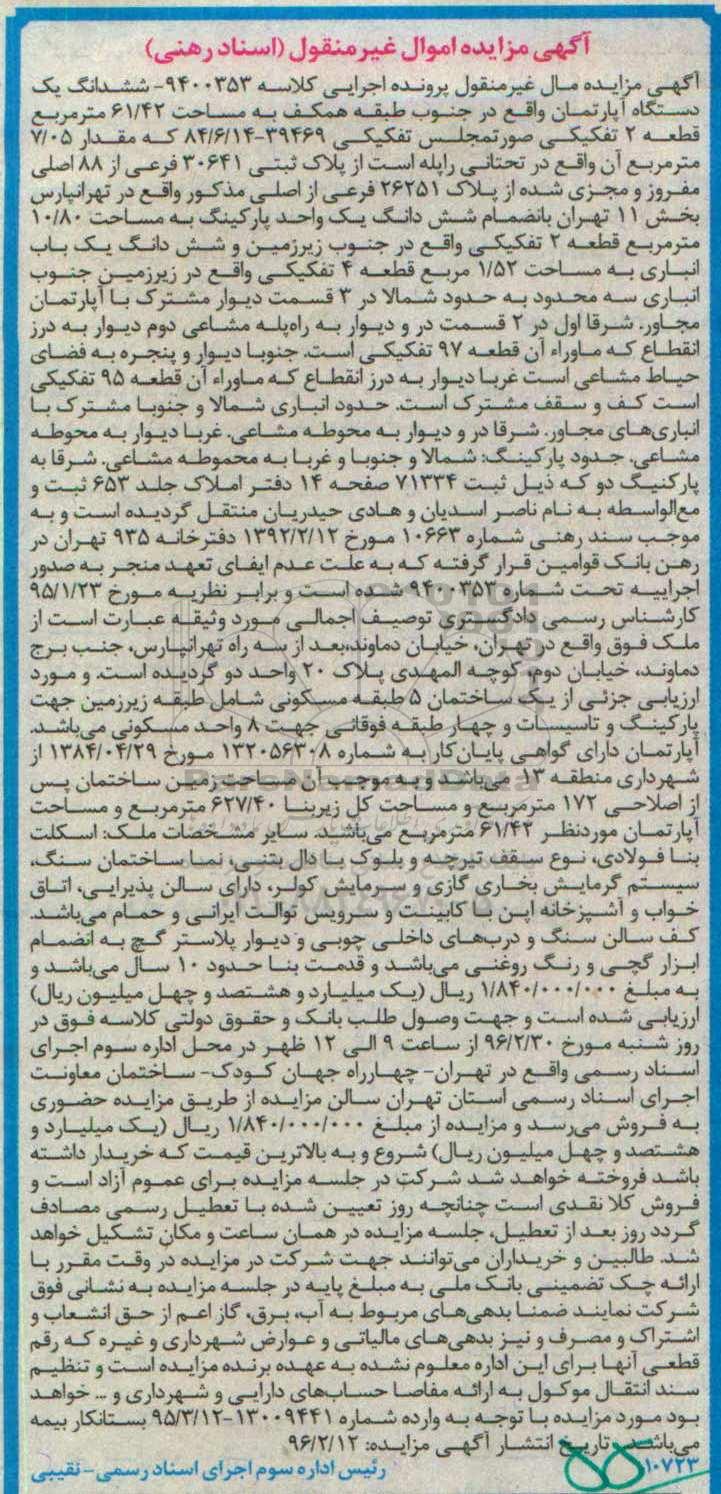 آگهی مزایده اموال غیرمنقول (اسناد رهنی)
آگهی مزایده مال غیرمنقول پرونده اجرایی کلاسه ۹۴۰۰۳۵۳- ششدانگ یک
دستگاه آپارتمان واقع در جنوب طبقه همکف به مساحت ۶۱/۴۲ مترمربع
قطعه ۲ تفکیکی صورتمجلس تفکیکی ۳۹۴۶۹-۸۴/۶/۱۴ که مقدار ۷/۰۵
مترمربع آن واقع در تحتانی راپله است از پلاک ثبتی ۳۰۶۴۱ فرعی از ۸۸ اصلی
مفروز و مجزی شده از پلاک ۲۶۲۵۱ فرعی از اصلی مذکور واقع در تهرانپارس
بخش ۱۱ تهران بانضمام شش دانگ یک واحد پارکینگ به مساحت ۱۰/۸۰
مترمربع قطعه ۲ تفکیکی واقع در جنوب زیرزمین و شش دانگ یک باب
انباری به مساحت ۱/۵۲ مربع قطعه ۴ تفکیکی واقع در زیرزمین جنوب
انباری سه محدود به حدود شمالا در ۳ قسمت دیوار مشترک با آپارتمان
مجاور. شرقا اول در ۲ قسمت در و دیوار به راه‌پله مشاعی دوم دیوار به درز
انقطاع که ماوراء آن قطعه ۹۷ تفکیکی است. جنوبا دیوار و پنجره به فضای
حیاط مشاعی است غربا دیوار به درز انقطاع که ماوراء آن قطعه ۹۵ تفکیکی
است کف و سقف مشترک است. حدود انباری شمالا و جنوبا مشترک با
انباری‌های مجاور. شرقا در و دیوار به محوطه مشاعی. غربا دیوار به محوطه
مشاعی. حدود پارکینگ: شمالا و جنوبا و غربا به محموطه مشاعی. شرقا به
پارکنیگ دو که ذیل ثبت ۷۱۳۳۴ صفحه ۱۴ دفتر املاک جلد ۶۵۳ ثبت و
مع‌الواسطه به نام ناصر اسدیان و هادی حیدریان منتقل گردیده است و به
موجب سند رهنی شماره ۱۰۶۶۳ مورخ ۱۳۹۲/۲/۱۲ دفترخانه ۹۳۵ تهران در
رهن بانک قوامین قرار گرفته که به علت عدم ایفای تعهد منجر به صدور
اجراییه تحت شماره ۹۴۰۰۳۵۳ شده است و برابر نظریه مورخ ۹۵/۱/۲۳
کارشناس رسمی دادگستری توصیف اجمالی مورد وثیقه عبارت است از
ملک فوق واقع در تهران، خیابان دماوند،بعد از سه راه تهرانپارس، جنب برج
دماوند، خیابان دوم، کوچه المهدی پلاک ۲۰ واحد دو گردیده است. و مورد
ارزیابی جزئی از یک ساختمان ۵ طبقه مسکونی شامل طبقه زیرزمین جهت
پارکینگ و تاسیسات و چهار طبقه فوقانی جهت ۸ واحد مسکونی می‌باشد.
آپارتمان دارای گواهی پایان‌کار به شماره ۱۳۲۰۵۶۳۰۸ مورخ ۱۳۸۴/۰۴/۲۹ از
شهرداری منطقه ۱۳ می‌باشد و به موجب آن مساحت زمین ساختمان پس
از اصلاحی ۱۷۲ مترمربع و مساحت کل زیربنا ۶۲۷/۴۰ مترمربع و مساحت
آپارتمان موردنظر ۶۱/۴۲ مترمربع می‌باشد. سایر مشخصات ملک: اسکلت
بنا فولادی، نوع سقف تیرچه و بلوک یا دال بتنی، نما ساختمان سنگ،
سیستم گرمایش بخاری گازی و سرمایش کولر، دارای سالن پذیرایی، اتاق
خواب و آشپزخانه اپن با کابینت و سرویس توالت ایرانی و حمام می‌باشد.
کف سالن سنگ و درب‌های داخلی چوبی و دیوار پلاستر گچ به انضمام
ابزار گچی و رنگ روغنی می‌باشد و قدمت بنا حدود ۱۰ سال می‌باشد و
به مبلغ ۱/۸۴۰/۰۰۰/۰۰۰ ریال (یک میلیارد و هشتصد و چهل میلیون ریال)
ارزیابی شده است و جهت وصول طلب بانک و حقوق دولتی کلاسه فوق در
روز شنبه مورخ ۹۶/۲/۳۰ از ساعت ۹ الی ۱۲ ظهر در محل اداره سوم اجرای
اسناد رسمی واقع در تهران- چهارراه جهان کودک- ساختمان معاونت
اجرای اسناد رسمی استان تهران سالن مزایده از طریق مزایده حضوری
به فروش می‌رسد و مزایده از مبلغ ۱/۸۴۰/۰۰۰/۰۰۰ ریال (یک میلیارد و
هشتصد و چهل میلیون ریال) شروع و به بالاترین قیمت که خریدار داشته
باشد فروخته خواهد شد شرکت در جلسه مزایده برای عموم آزاد است و
فروش کلا نقدی است چنانچه روز تعیین شده با تعطیل رسمی مصادف
گردد روز بعد از تعطیل، جلسه مزایده در همان ساعت و مکان تشکیل خواهد
شد. طالبین و خریداران می‌توانند جهت شرکت در مزایده در وقت مقرر با
ارائه چک تضمینی بانک ملی به مبلغ پایه در جلسه مزایده به نشانی فوق
شرکت نمایند ضمنا بدهی‌های مربوط به آب، برق، گاز اعم از حق انشعاب و
اشتراک و مصرف و نیز بدهی‌های مالیاتی و عوارض شهرداری و غیره که رقم
قطعی آنها برای این اداره معلوم نشده به عهده برنده مزایده است و تنظیم
سند انتقال موکول به ارائه مفاصا حساب‌های دارایی و شهرداری و ... خواهد
بود مورد مزایده با توجه به وارده شماره ۱۳۰۰۹۴۴۱-۹۵/۳/۱۲ بستانکار بیمه
می‌باشد. تاریخ انتشار آگهی مزایده: ۹۶/۲/۱۲
۱۰۷۲۳ رئیس اداره سوم اجرای اسناد رسمی- نقیبی